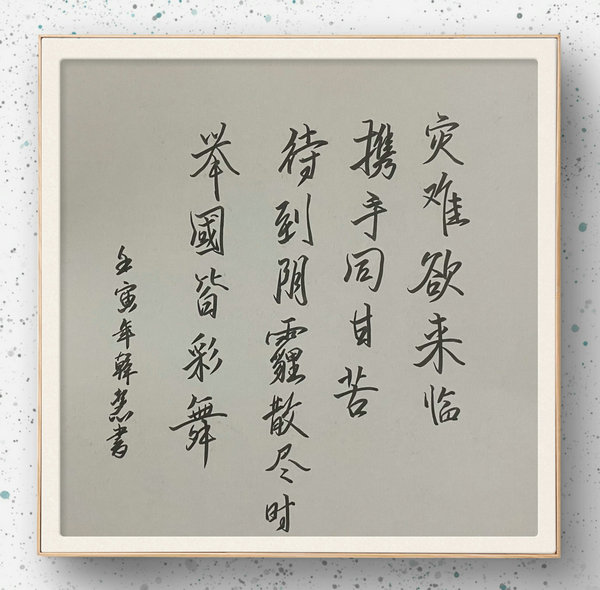 灾难欲来临
携手同甘苦
待到阴霾散尽时
举國皆彩舞
壬寅年韩慧書